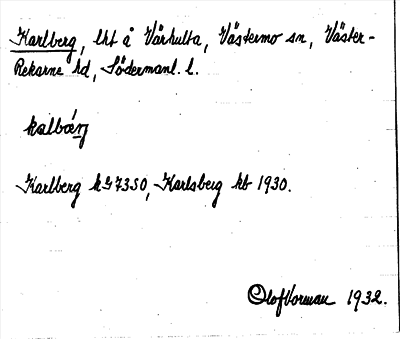 Karlberg, lht å Vårhulta, Västermo sn, Väster-
Rekarne hd, Södermanl. l.
Karlberg 7350, Karlsberg kb 1930.
Olof Vorman 1932.